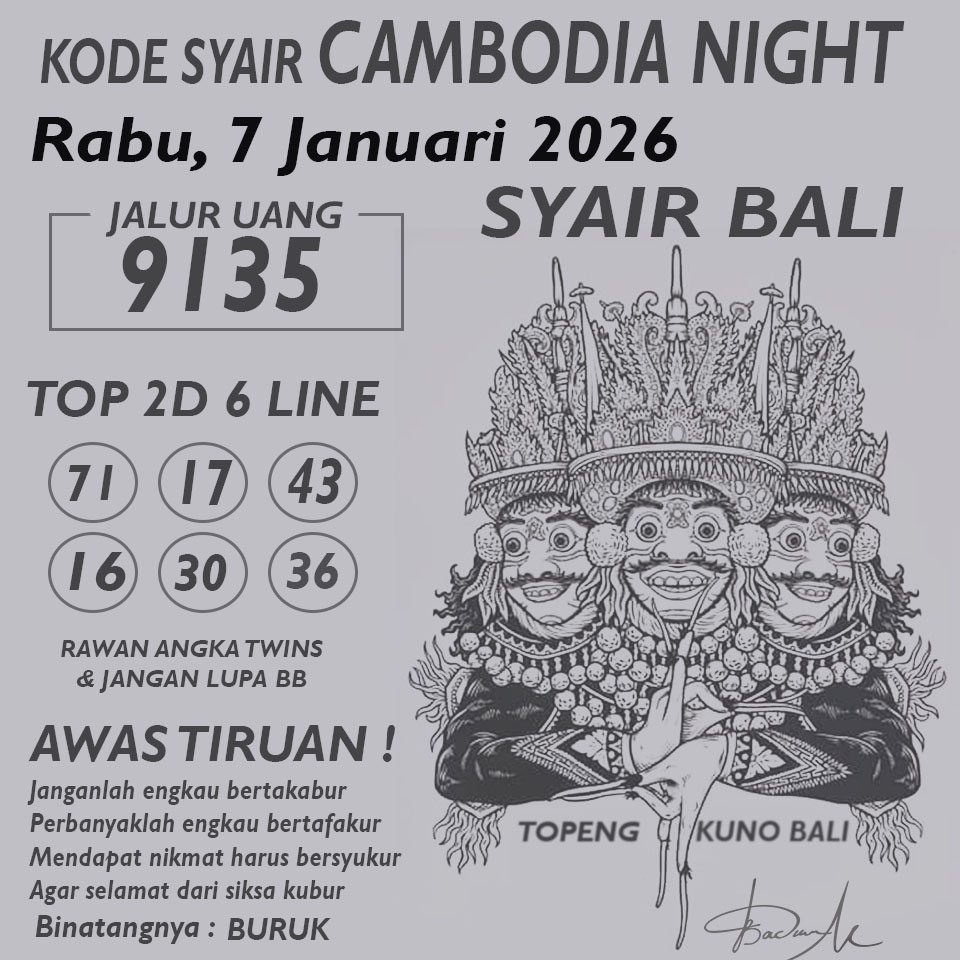 KODE SYAIR CAMBODIA NIGHT
Rabu, 7 Januari 2026
SYAIR BALI
JALUR UANG
9135
TOP 2D 6 LINE
71 17 43
16 30 36
RAWAN ANGKA TWINS
& JANGAN LUPA BB
AWAS TIRUAN !
Janganlah engkau bertakabur
Perbanyaklah engkau bertafakur
Mendapat nikmat harus bersyukur
Agar selamat dari siksa kubur
Binatangnya : BURUK
TOPENG KUNO BALI